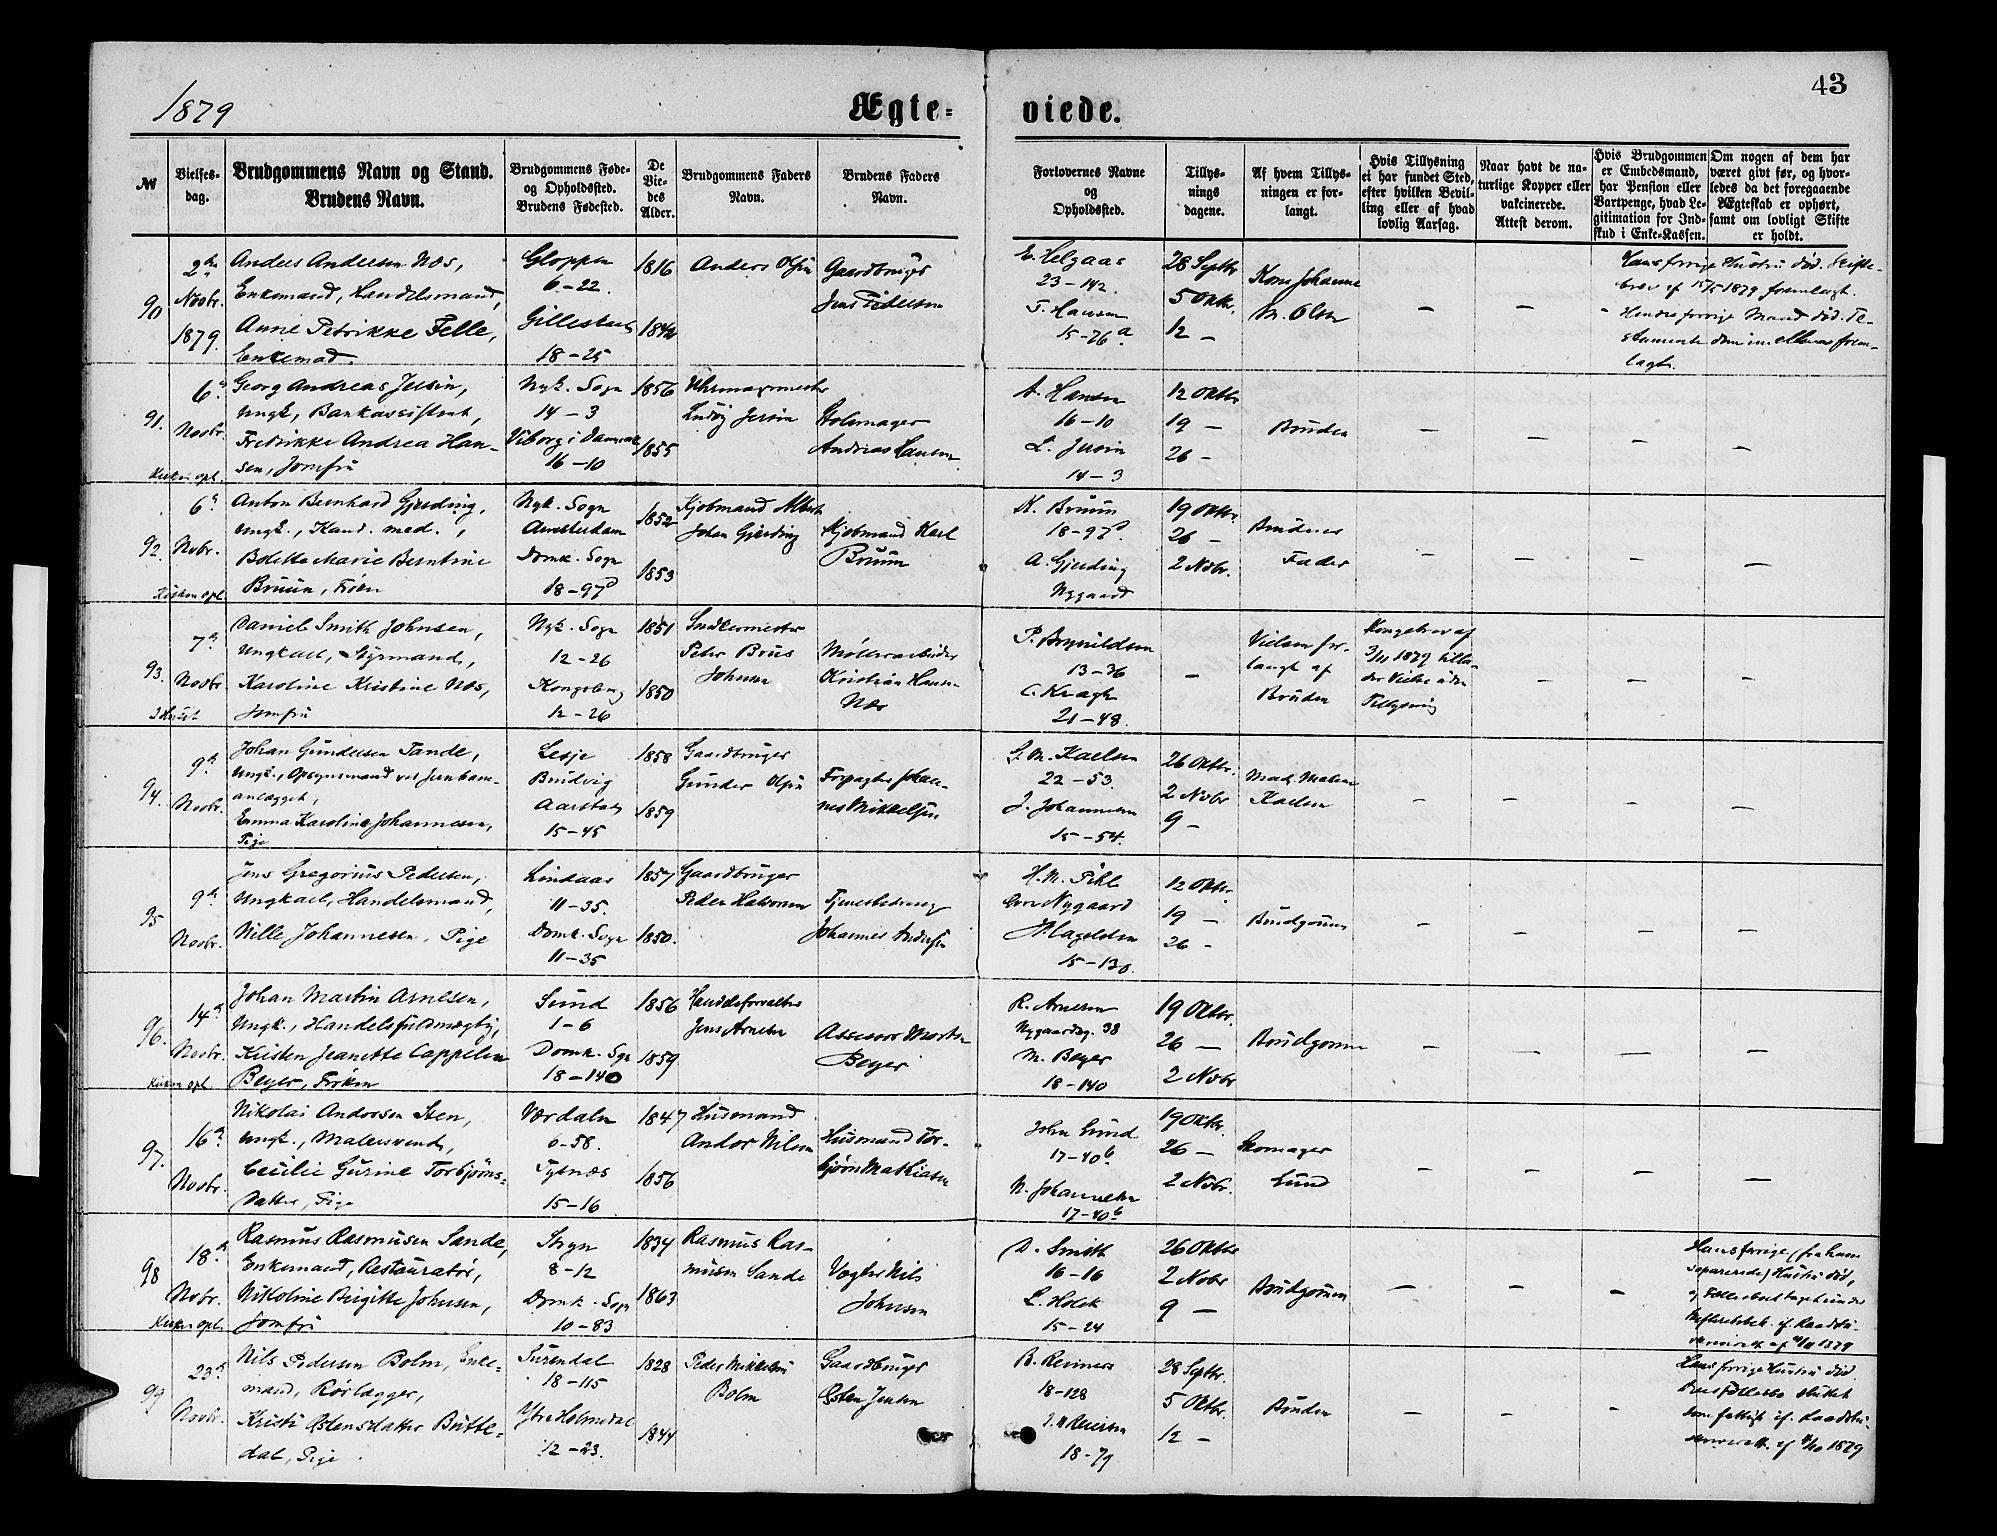 1879
Ægte-
viede.
43
№
Vielses-
dag.
Brudgommens Navn og Stand.
Brudens Navn.
Brudgommens Føde-
og Opholdssted.
Brudens Fødested.
De
Vie-
des
Alder.
Brudgommens Faders
Navn.
Brudens Faders
Navn.
Forlovernes Navne
og
Opholdssted.
Tillys-
nings
dagene.
Af hvem Tillys-
ningen er for-
langt.
Hvis Tillysning
ei har fundet Sted,
efter hvilken Bevil-
ling eller af hvad
lovlig Aarsag.
Naar havt de na-
turlige Kopper eller
vakcinerede.
Attest derom.
Hvis Brudgommen
er Embedsmand,
har Pension eller
Vartpenge, hvad Le-
gitimation for Ind-
skud i Enke-Kassen.
Om nogen af dem har
været givt før, og hvor-
ledes da det foregaaende
Ægteskab er ophørt,
samt om lovligt Skifte
er holdt.
90
2den
Novbr.
1879.
Anders Andersen Næs,
Enkemand, Handelsmand,
Anne Petrikke Felle,
Enkemad.
Gloppen
6-22.
Gillestad
18-25
1816
1842
Anders Olsen
Gaardbruger
Jens Pedersen
E. Helgaas
23-142.
T. Hansen
15-76a
28 Septbr
5 Oktb.
12 -
Kone Johanne
M. Olsen
Hans forrige Hustru død. Skifte-
brev af 15/5 1879 fremlagt.
Hendes forrige Mand død. Te-
stamente dem imellem frem-
lagt.
91.
6te
Novbr.
Kirken opl.
Georg Andreas Jersin,
Ungk., Bankassistent,
Fredrikke Andrea Han-
sen, Jomfru
Nyk. Sogn
14-3
Viborg i Danmark
16-10
1856
1855
Uhrmagermester
Ludvig Jersin
Stolemager
Andreas Hansen
A. Hansen
16-10
L. Jersin
14-3
12 Oktbr
19 -
26 -
Bruden
92.
6te
Nvbr.
Kirken opl.
Anton Bernhard Gjerding,
Ungk., Kand. med.,
Bolette Marie Berntine
Bruun, Frøken
Nyk. Sogn
Amsterdam
Domk. Sogn
18-97d
1852
1853
Kjøbmand Albert
Johan Gjerding
Kjøbmand Karl
Bruun
K. Bruun
18-97d.
A. Gjerding
Nygaard
19 Oktbr.
26 -
2 Novbr.
Brudens
Fader
93.
7de
Novbr.
I Huset
Daniel Smith Johnsen,
Ungkarl, Styrmand,
Karoline Kristine Næs,
Jomfru
Nyk. Sogn
12-26
Kongsberg
12-26
1851
1850
Snedkermester
Peter Brus
Johnsen
Møllerarbeider
Kristian Hansen
Næs
P. Brynildsen
13-36
C. Kragh
21-48.
Vielsen for-
langt af
Bruden
Kongebrev af
3/11 1879 tilla-
der Vielse uden
Tillysning
94.
9de
Novbr.
Johan Gundersen Tande,
Ungk., Opsynsmand ved Jernbane-
anlægget,
Emma Karoline Johannesen,
Pige
Lesje
Bredvig
Aarstad
15-45
1858
1859
Gaardbruger
Gunder Olsen
Forpagter Johan-
nes Mikkelsen
J. M. Karlsen
22-53.
J. Johannesen
15-54.
26 Oktbr.
2 Nvbr
9 -
Mad. Malene
Karlsen
95
9de
Novbr.
Jens Gregorius Pedersen,
Ungkarl, Handelsmand,
Nille Johannesen, Pige
Lindaas
11-35.
Domk. Sogn
11-35
1857
1850.
Gaardbruger
Peder Halvorsen
Tjenestedreng
Johannes Andersen
H. M. Pihl
Øvre Nygaard
15-130.
12 Oktbr.
19 -
26 -
Brudgommen
96.
14de
Novbr.
Kirken opl.
Johan Martin Arnesen,
Ungk., Handelsfuldmægtig,
Kirsten Jeanette Cappelen
Beyer, Frøken
Sund
1-6
Domk. Sgn
18-140
1856
1859
Handelsforvalter
Jens Arnesen
Assessor Morten
Beyer
R. Arnesen
Nygaardsg. 38
M. Beyer
18-140
19 Oktbr.
26 -
2 Nvbr
Brudgommen
97.
16de
Novbr.
Nikolai Andorsen Sten,
Ungk., Malersvend,
Cecilie Gurine Torbjørns-
datter, Pige
Værdalen
6-58.
Tysnæs
15-16
1847
1856
Husmand
Andor Nilsen
Husmand Tor-
bjørn Mathiasen
John Lund
17-40b
N. Johannesen
17-40b
19 Oktbr.
26 -
2 Nvbr.
Skomager
Lund
98
18de
Novbr.
Kirken opl.
Rasmus Rasmusen Sande,
Enkemand, Restauratør,
Nikoline Birgitte Johnsen,
Jomfru
Stryn
8-12
Domk. Sogn
10-83
1834
1863
Rasmus Ras-
musen Sande
Vægter Nils
Johnsen
D. Smith
16-16
L. Holck
15-24
26 Oktbr
2 Novbr
9 -
Brudgommen
Hans forrige, fra ham
separerede, Hustru død,
1879
99
23de
Novbr.
Nils Pedersen Bolm, Enke-
mand, Rørlægger,
Kristi Østensdatter Butte-
dal, Pige
Surendal
18-115
Ytre Holmedal
12-23.
1828
1844
Peder Mikkelsen
Bolm
Gaardbruger
Østen Jensen
B. Reimers
18-128
18-79
28 Septbr.
5 Oktbr.
12 -
Bruden
Hans forrige Hustru død.
1879